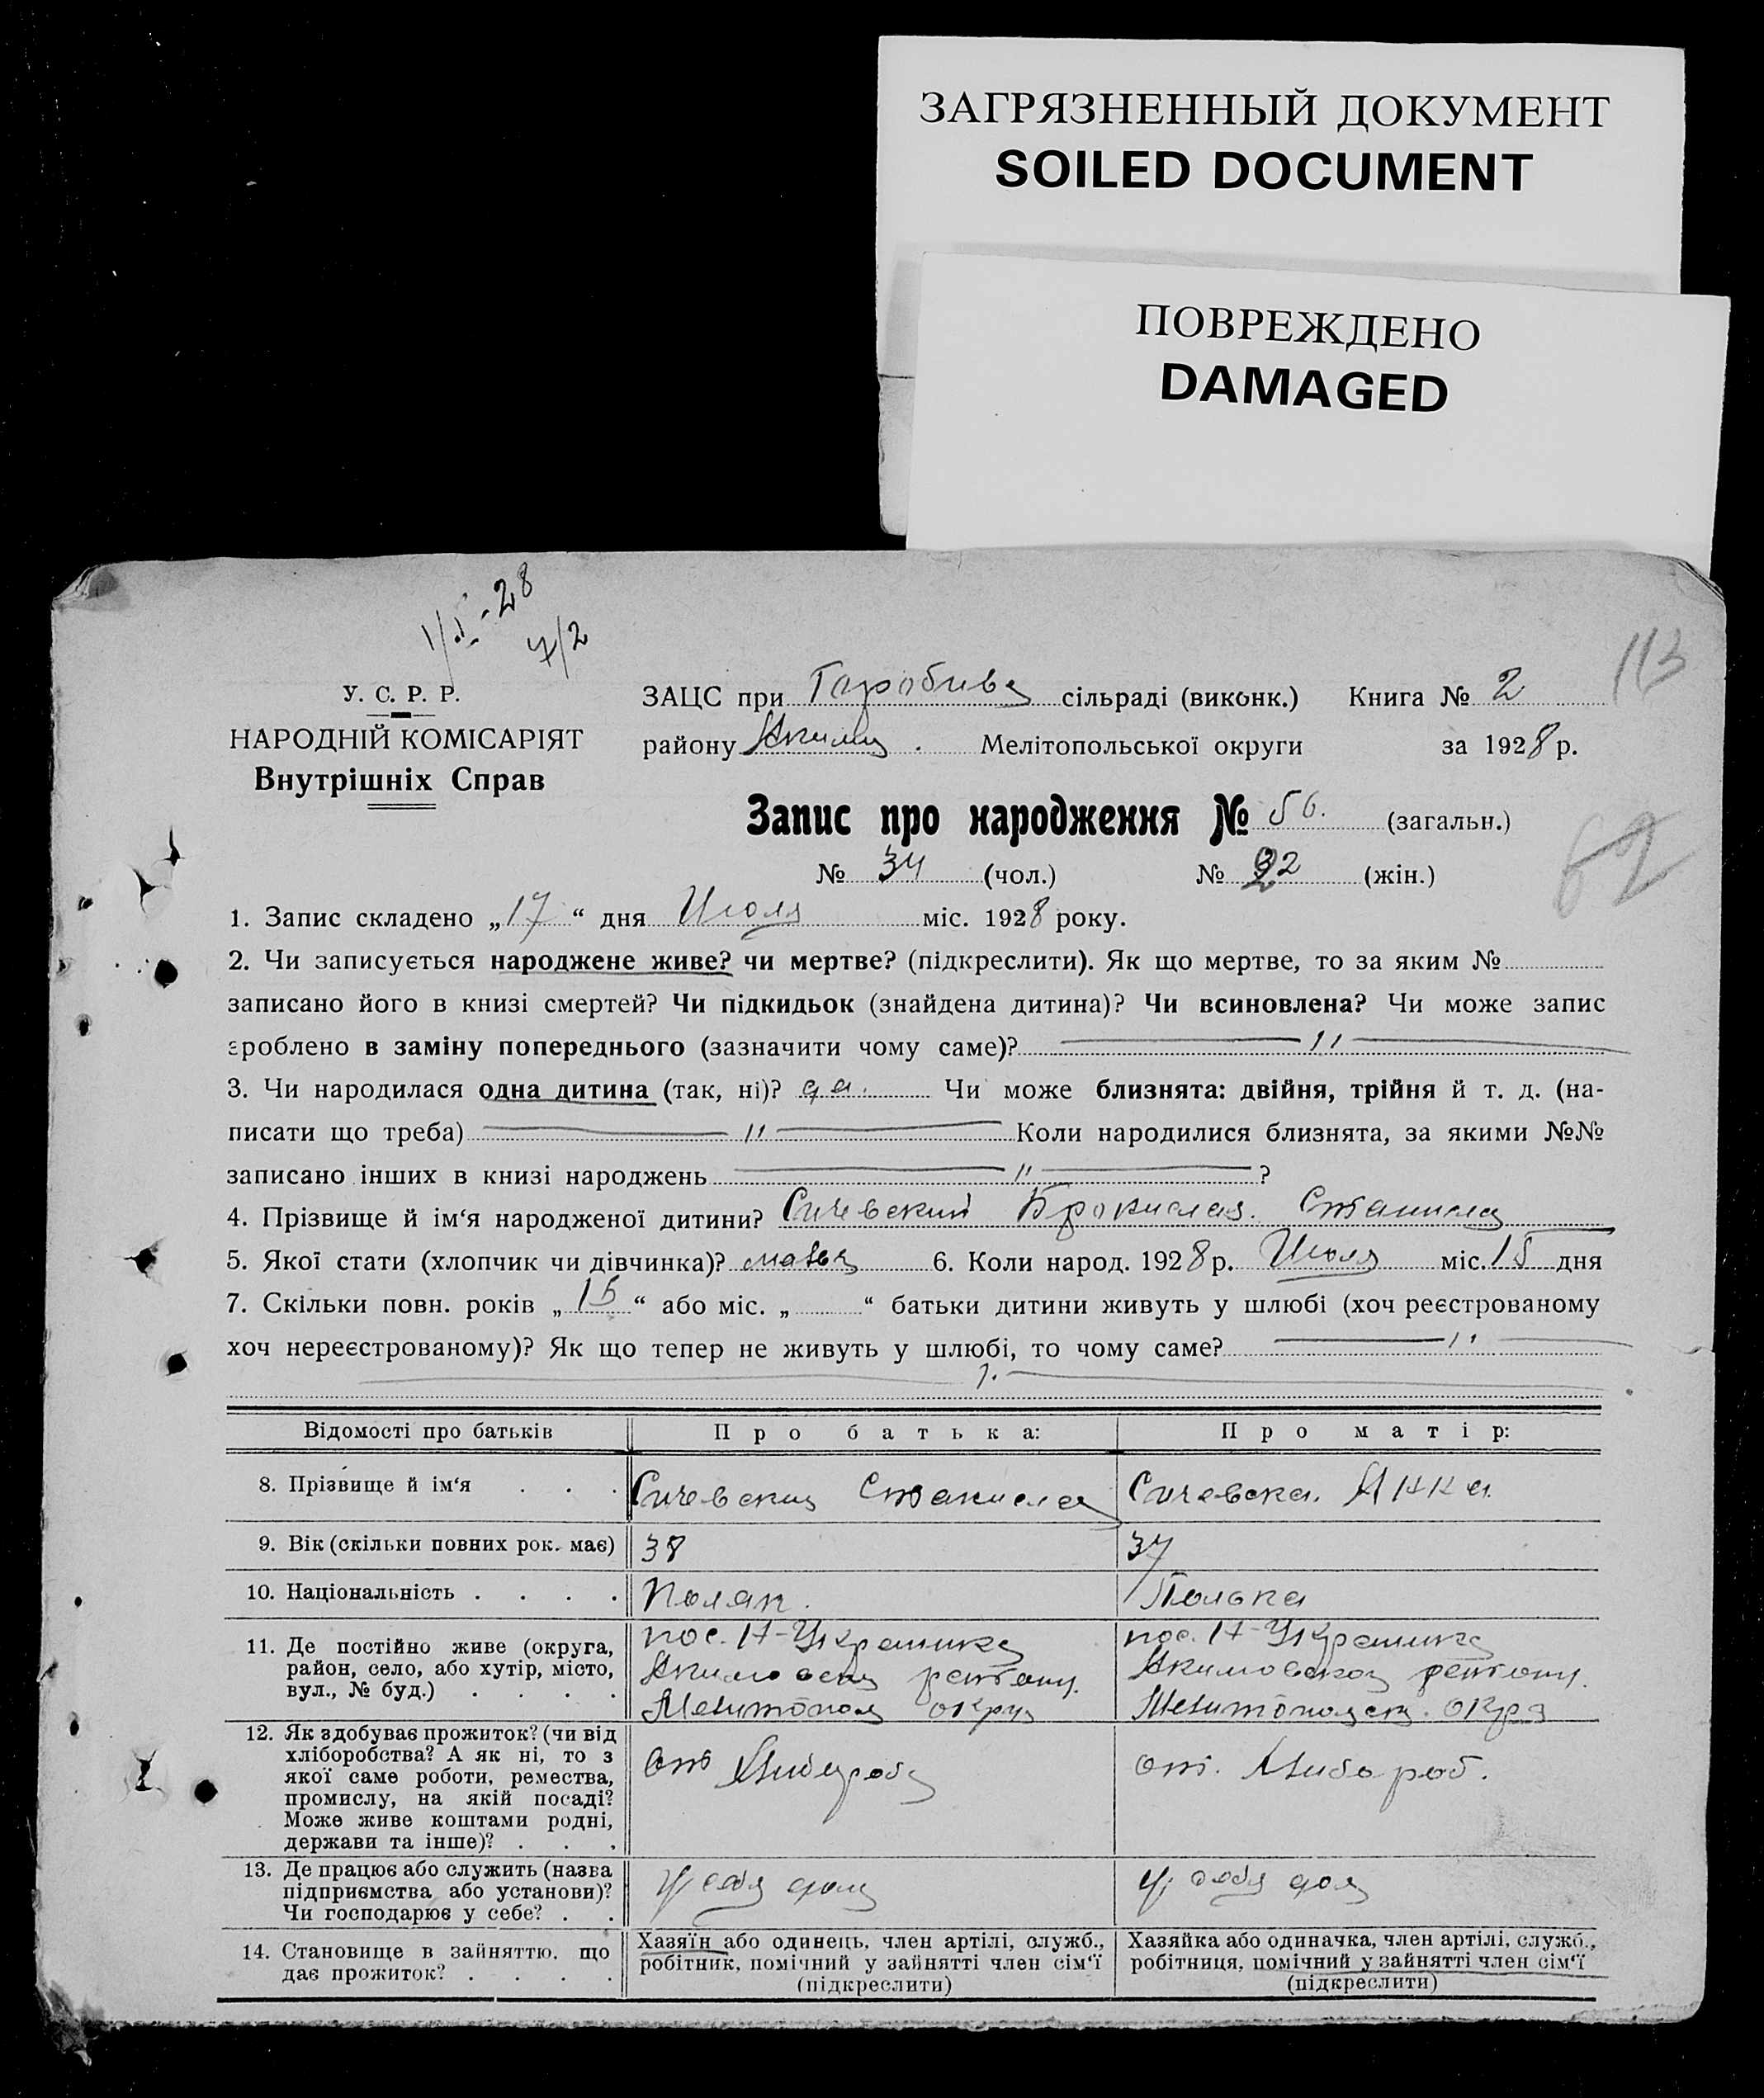 ЗАГРЯЗНЕННЫЙ ДОКУМЕНТ
SOILED DOCUMENT
ПОВРЕЖДЕНО
DAMAGED
7/2
113
У. С. Р. Р.
НАРОДНІЙ КОМІСАРІЯТ
Внутрішніх Справ
ЗАЦС при сільраді (виконк.) Книга № 2
району Аким . Мелітопольської округи за 1928 р.
Запис про народження № 56. (загальн.)
№ 34 (чол.) № 22 (жін.)
62
1. Запис складено „17“ дня Июля міс. 1928 року.
2. Чи записується народжене живе? чи мертве? (підкреслити). Як що мертве, то за яким №
записано його в книзі смертей? Чи підкидьок (знайдена дитина)? Чи всиновлена? Чи може запис
зроблено в заміну попереднього (зазначити чому саме)? — 〃 —
3. Чи народилася одна дитина (так, ні)? да. Чи може близнята: двійня, трійня й т. д. (на-
писати що треба) — 〃 — Коли народилися близнята, за якими №№
записано інших в книзі народжень — 〃 — ?
4. Прізвище й ім‘я народженої дитини? Сичевский Бронислав. Станисла
5. Якої стати (хлопчик чи дівчинка)? 6. Коли народ. 1928 р. Июля міс. 15 дня
7. Скільки повн. років „15“ або міс. „ “ батьки дитини живуть у шлюбі (хоч реєстрованому
хоч нереєстрованому)? Як що тепер не живуть у шлюбі, то чому саме? — 〃 —
Відомості про батьків Про батька: Про матір:
8. Прізвище й ім‘я . . . Сичевский Станислав Сичевска. Анна.
9. Вік (скільки повних рок. має) 38 37
10. Національність . . . . Поляк. Полька
11. Де постійно живе (округа, район, село, або хутір, місто, вул., № буд.) . . . .
пос. Н-Украинка пос. Н-Украинка
Акимовск району. Акимовског району.
Мелитопол округ Мелитопольск. округ
12. Як здобуває прожиток? (чи від хліборобства? А як ні, то з якої саме роботи, ремества, промислу, на якій посаді? Може живе коштами родні, держави та інше)? . . .
от Хлибороб от. Хлибороб.
13. Де працює або служить (назва підприємства або установи)? Чи господарює у себе? . .
у себя дома у себя дома
14. Становище в зайняттю, що дає прожиток? . . . .
Хазяїн або одинець, член артілі, служб., робітник, помічний у зайнятті член сім‘ї (підкреслити)
Хазяйка або одиначка, член артілі, служб., робітниця, помічний у зайнятті член сім‘ї (підкреслити)